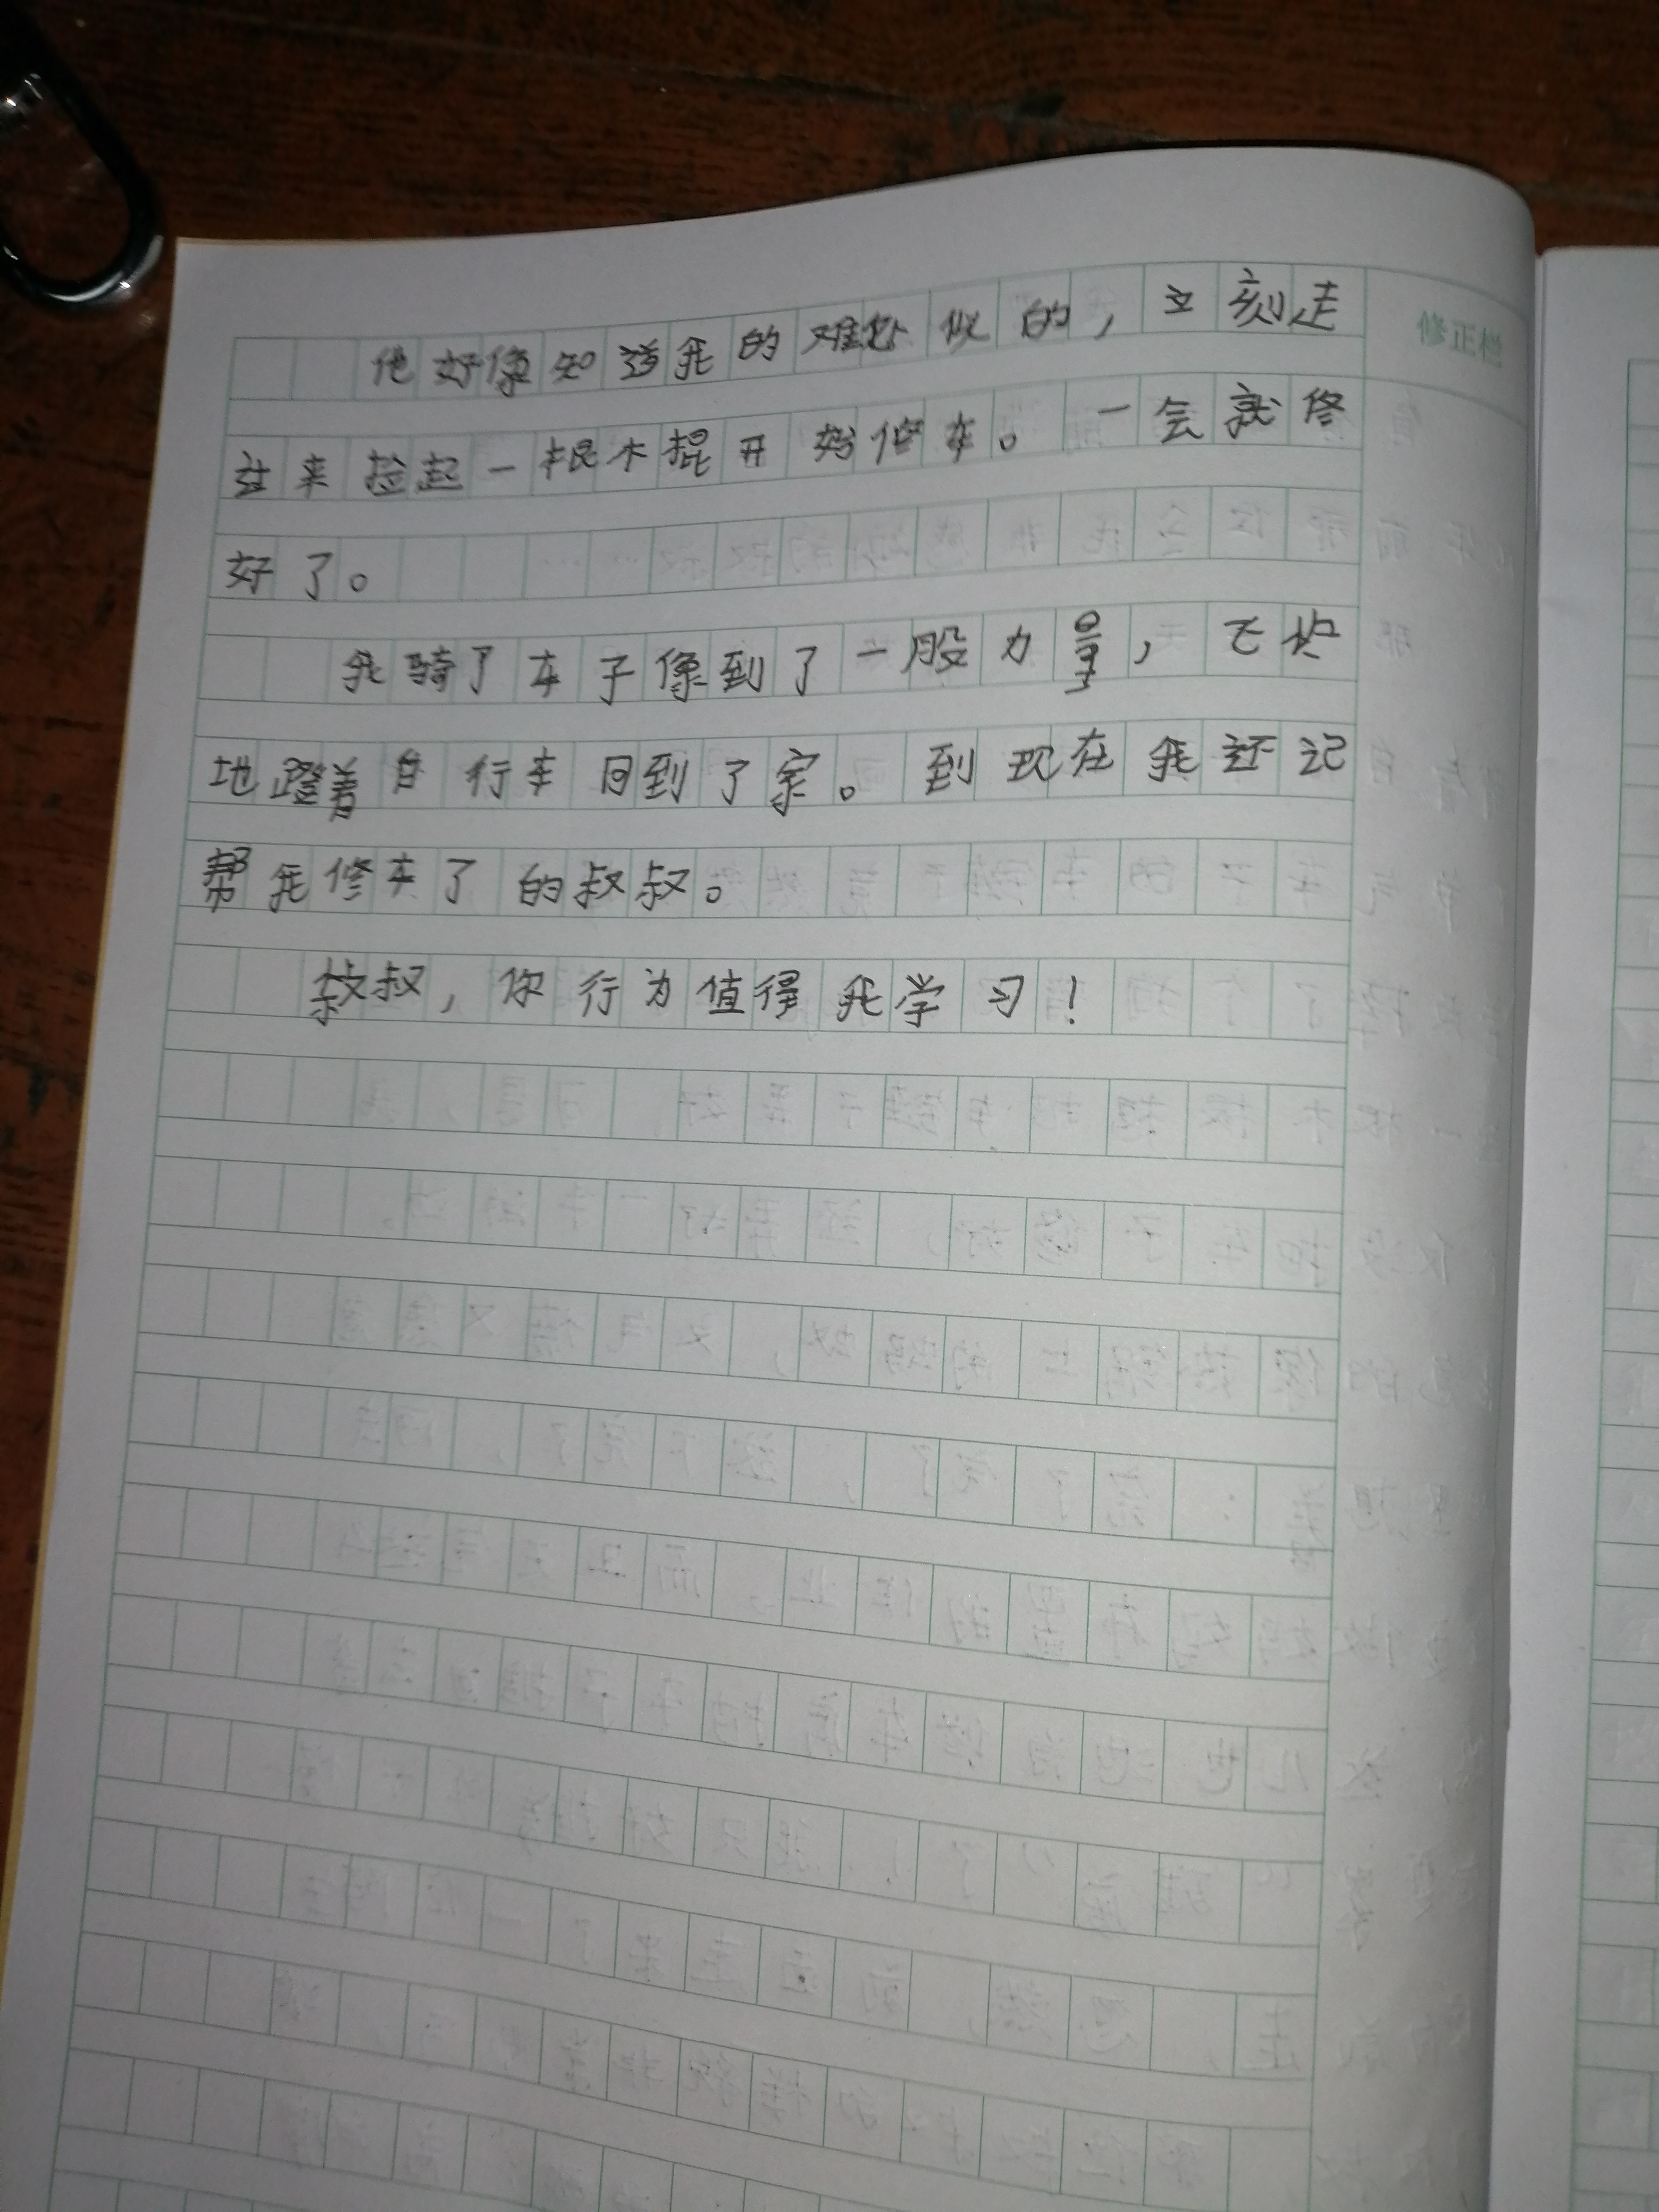 他好像知道我的难处似的，立刻走
过来捡起一根木棍开始修车。一会就修
好了。
我骑了车子像到了一股力量，飞快
地蹬着自行车回到了家。到现在我还记
帮我修车了的叔叔。
叔叔，你行为值得我学习！
修正栏